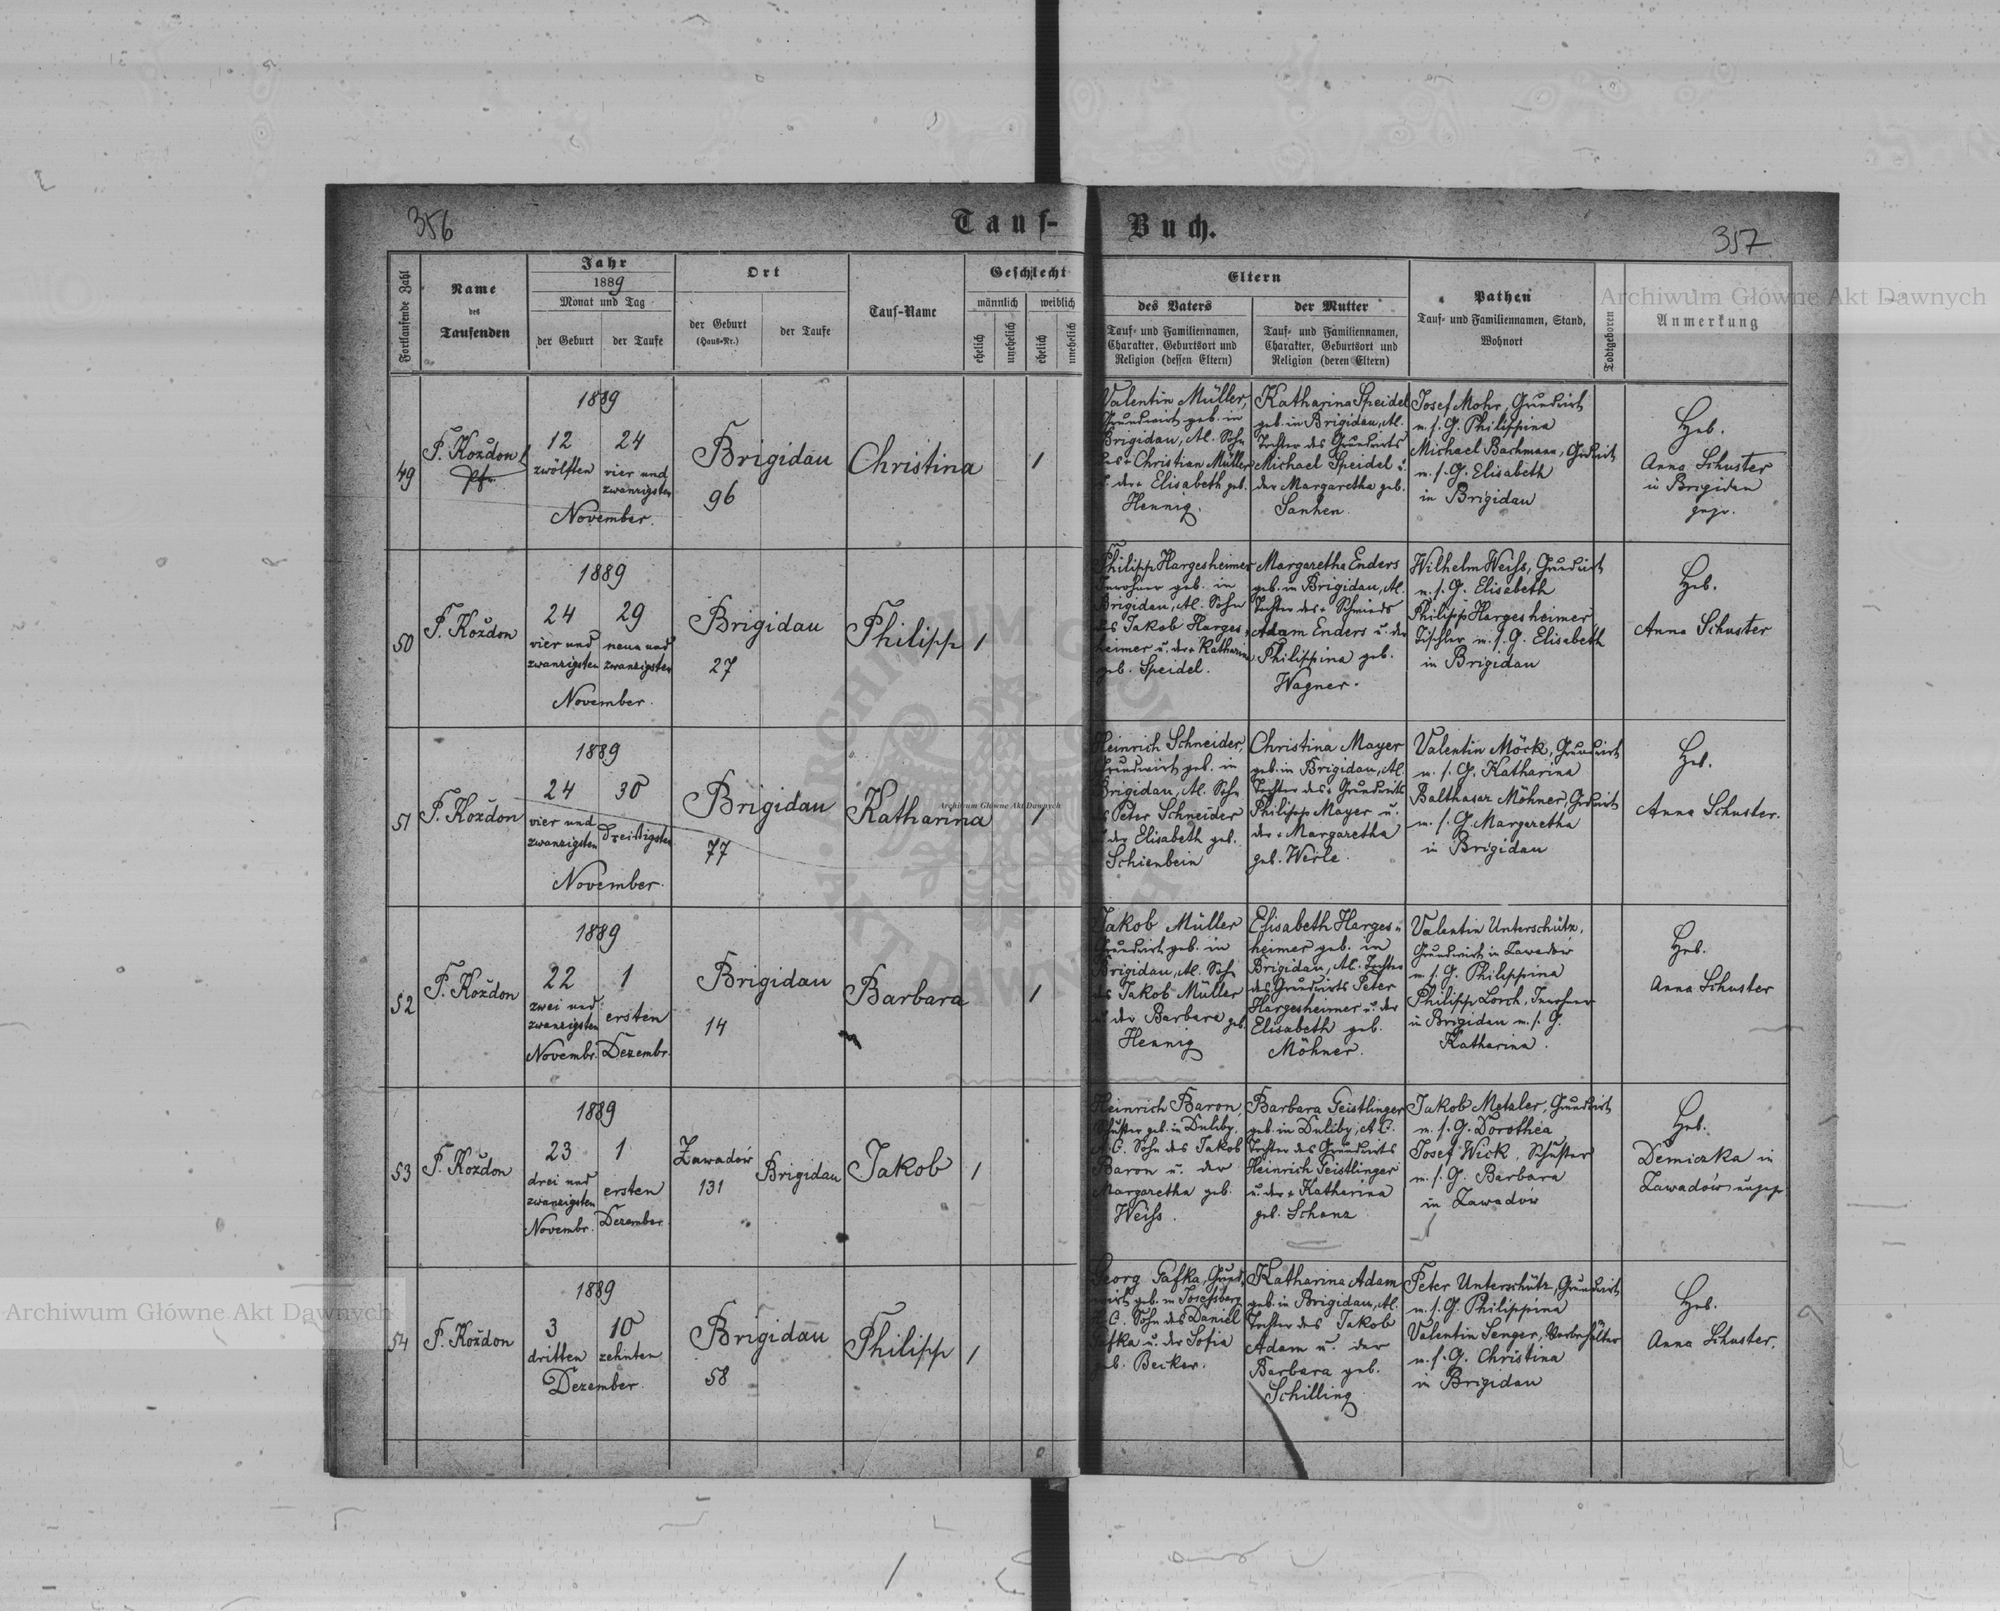 356
Tauf-
Buch.
357
Fortlaufende Zahl
Name
des
Taufenden
Jahr
1889
Monat und Tag
der Geburt
der Taufe
Ort
der Geburt
(Haus-Nr.)
der Taufe
Tauf-Name
Geschlecht
männlich
weiblich
ehelich
unehelich
ehelich
unehelich
Eltern
des Vaters
Tauf- und Familiennamen,
Charakter, Geburtsort und
Religion (dessen Eltern)
der Mutter
Tauf- und Familiennamen,
Charakter, Geburtsort und
Religion (deren Eltern)
Pathen
Tauf- und Familiennamen, Stand,
Wohnort
Todtgeboren
Anmerkung
49
F. Koždon
Pfr.
1889
12
zwölften
24
vier und
zwanzigsten
November.
Brigidau
96
Christina
1
Valentin Müller,
Grundwirt geb. in
Brigidau, Al. Sohn
des + Christian Müller
u. der + Elisabeth geb.
Hennig.
Katharina Speidel
geb. in Brigidau, Al.
Tochter des Grundwirts
Michael Speidel u.
der Margaretha geb.
Sanhen.
Josef Mohr, Grundwirt
m. s. G. Philippina
Michael Bachmann, Grdwirt
m. s. G. Elisabeth
in Brigidau
Heb.
Anna Schuster
in Brigidau
gepr.
50
F. Koždon
1889
24
vier und
zwanzigsten
29
neun und
zwanzigsten
November.
Brigidau
27
Philipp
1
Philipp Hargesheimer
Inwohner geb. in
Brigidau, Al. Sohn
des Jakob Harges-
heimer u. der + Katharina
geb. Speidel.
Margaretha Enders
geb. in Brigidau, Al.
Tochter des + Schmieds
Adam Enders u. der
Philippina geb.
Wagner.
Wilhelm Weiss, Grundwirt
m. s. G. Elisabeth
Philipp Hargesheimer,
Tischler m. s. G. Elisabeth
in Brigidau
Heb.
Anna Schuster
51
F. Koždon
1889
24
vier und
zwanzigsten
30
dreißigsten
November.
Brigidau
77
Katharina
1
Heinrich Schneider,
Grundwirt geb. in
Brigidau, Al. Sohn
des Peter Schneider
u. der Elisabeth geb.
Schienbein
Christina Mayer
geb. in Brigidau, Al.
Tochter des + Grundwirts
Philipp Mayer u.
der + Margaretha
geb. Werle.
Valentin Möck, Grundwirt
m. s. G. Katharina
Balthasar Möhner, Grdwirt
m. s. G. Margaretha
in Brigidau
Heb.
Anna Schuster.
52
F. Koždon
1889
22
zwei und
zwanzigsten
Novembr.
1
ersten
Dezembr.
Brigidau
14
Barbara
1
Jakob Müller
Grundwirt geb. in
Brigidau, Al. Sohn
des Jakob Müller
u. der Barbara geb.
Hennig
Elisabeth Harges-
heimer geb. in
Brigidau, Al. Tochter
des Grundwirts Peter
Hargesheimer u. der
Elisabeth geb.
Möhner.
Valentin Unterschütz,
Grundwirt in Zawadów
m. s. G. Philippina
Philipp Lorch, Inwohner
in Brigidau m. s. G.
Katharina.
Heb.
Anna Schuster
53
F. Koždon
1889
23
drei und
zwanzigsten
Novembr.
1
ersten
Dezember
Zawadów
131
Brigidau
Jakob
1
Heinrich Baron,
Schuster geb. in Duliby,
A. C. Sohn des Jakob
Baron u. der
Margaretha geb.
Weiss.
Barbara Geistlinger
geb. in Duliby, A. C.
Tochter des Grundwirts
Heinrich Geistlinger
u. der + Katharina
geb. Schanz
Jakob Metzler, Grundwirt
m. s. G. Dorothea
Josef Wick, Schuster
m. s. G. Barbara
in Zawadów
Heb.
Demiczka in
Zawadów ungepr
54
F. Koždon
1889
3
dritten
10
zehnten
Dezember.
Brigidau
58
Philipp
1
Georg Gafka, Grund-
wirt geb. in Josefsberg
A. C. Sohn des Daniel
Gafka u. der Sofia
geb. Becker.
Katharina Adam
geb. in Brigidau, Al.
Tochter des Jakob
Adam u. der
Barbara geb.
Schilling
Peter Unterschütz, Grundwirt
m. s. G. Philippina
Valentin Senger, Vorbehälter
m. s. G. Christina
in Brigidau
Heb.
Anna Schuster.
Archiwum Główne Akt Dawnych
Archiwum Główne Akt Dawnych
Archiwum Główne Akt Dawnych
ARCHIWUM GŁÓWNE AKT DAWNYCH